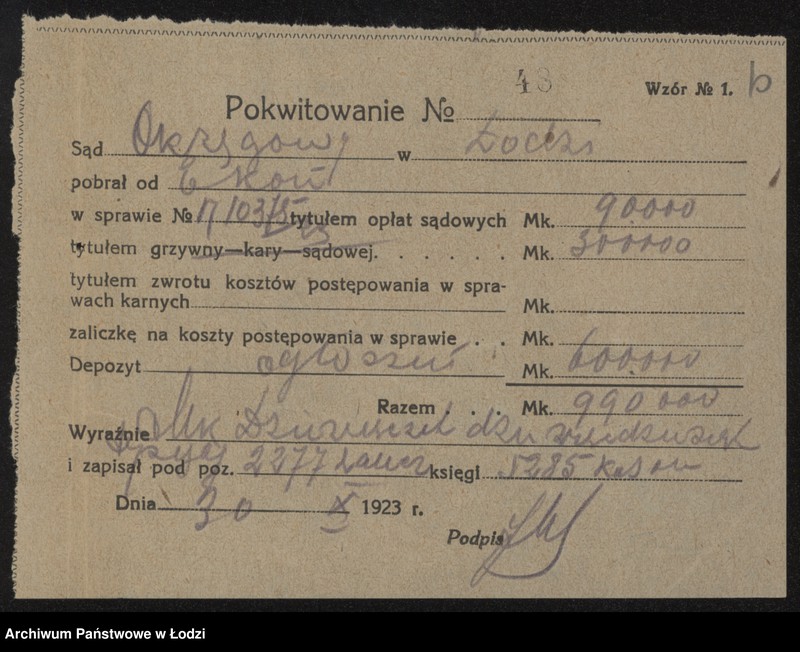 48
Wzór № 1. b
Pokwitowanie №
Sąd Okręgowy w Łodzi
pobrał od
w sprawie № 17/103/15 tytułem opłat sądowych Mk. 90000
23
tytułem grzywny—kary—sądowej. . . . . . . Mk. 300000
tytułem zwrotu kosztów postępowania w spra-
wach karnych Mk.
zaliczkę na koszty postępowania w sprawie . . Mk.
Depozyt ogłoszeń Mk. 600000
Razem . . . Mk. 990000
Wyraźnie Mk Dziewięćset dziewięćdziesiąt
tysięcy
i zapisał pod poz. 2277 księgi 5285 kasow
Dnia 30 X 1923 r.
Podpis
Archiwum Państwowe w Łodzi